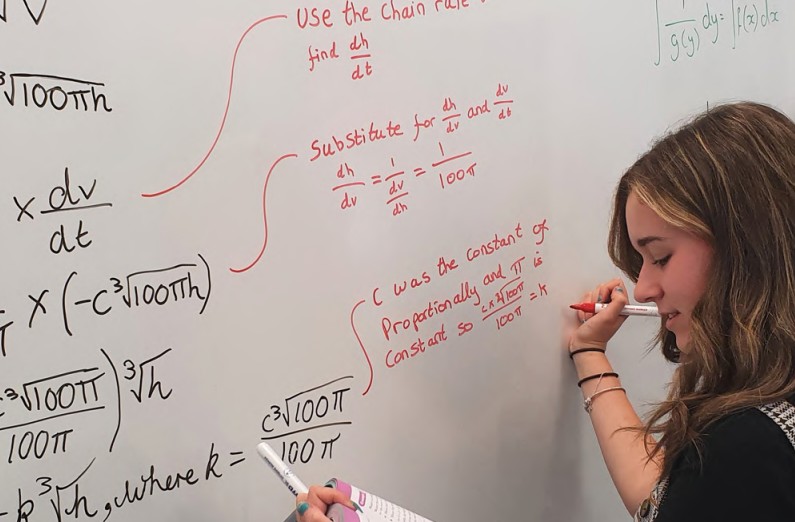 Use the Chain rule
find dh/dt
∫ 1/g(y) dy = ∫ f(x) dx
³√100πh
Substitute for dh/dv and dv/dt
dh/dv = 1/(dv/dh) = 1/100π
x dv/dt
C was the constant of
Proportionally and π is
Constant so c x ³√100π/100π = k
x (-c³√100πh)
c³√100π/100π) ³√h
k³√h, where k = c³√100π/100π